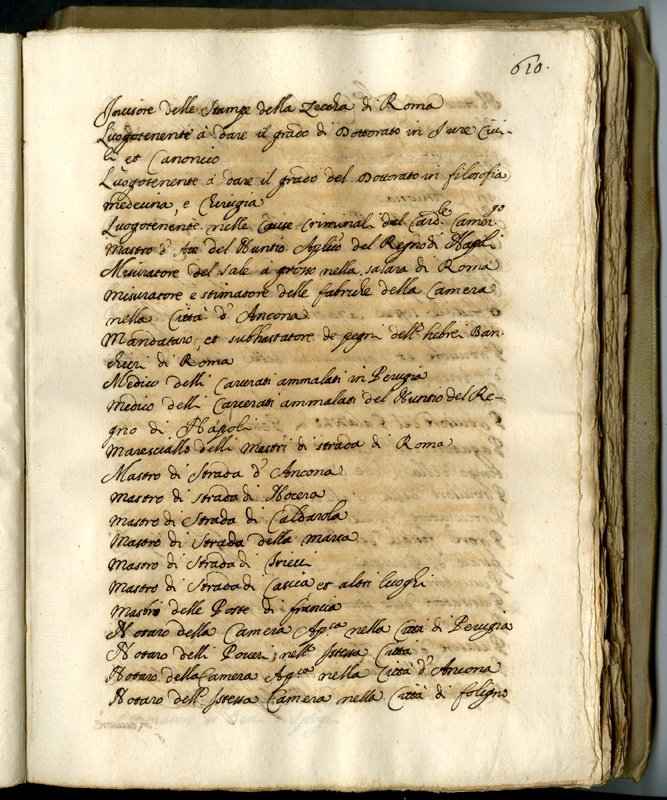 610.
Incisore delle Stampe della Zeccha di Roma
Luogotenente à dare il grado di Dottorato in Jure Civi-
li et Canonico
Luogotenente à dare il grado del Dottorato in filosofia
medecina, e Cirugia
Luogotenente nelle Cause Criminali del Card.le Camer.go
Mastro d'Atti del Nuntio Aplico del Regno di Napoli
Misuratore del sale à grosso nella salara di Roma
Misuratore e stimatore delle fabriche della Camera
nella Città d'Ancona
Mandataro, et subhastatore de pegni dell'hebrei Ban-
chieri di Roma
Medico delli Carcerati ammalati in Perugia
Medico delli Carcerati ammalati del Nuntio del Re-
gno di Napoli
Maresciallo delli Mastri di strada di Roma
Mastro di Strada d'Ancona
Mastro di strada di Nocera
Mastro di Strada di Caldarola
Mastro di Strada della marca
Mastro di Strada di
Mastro di Strada di Cascia et altri luoghi
Mastri delle Poste di francia
Notaro della Camera Ap.ca nella Città di Perugia
Notaro delli Poveri, nell'Istessa Città
Notaro della Camera Ap.ca nella Città d'Ancona
Notaro dell'Istessa Camera nella Città di foligno